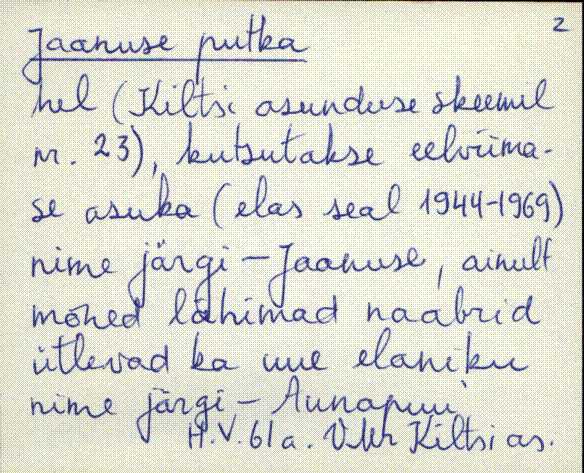 2
Jaanuse putka
hel (Kiltsi asunduse skeemil
nr. 23), kutsutakse eelviima-
se asuka (elas seal 1944-1969)
nime järgi - Jaanuse, ainult
mõned lähimad naabrid
ütlevad ka uue elaniku
nime järgi - Aunapuu
H.V. 61 a. V.Mr Kiltsi as.